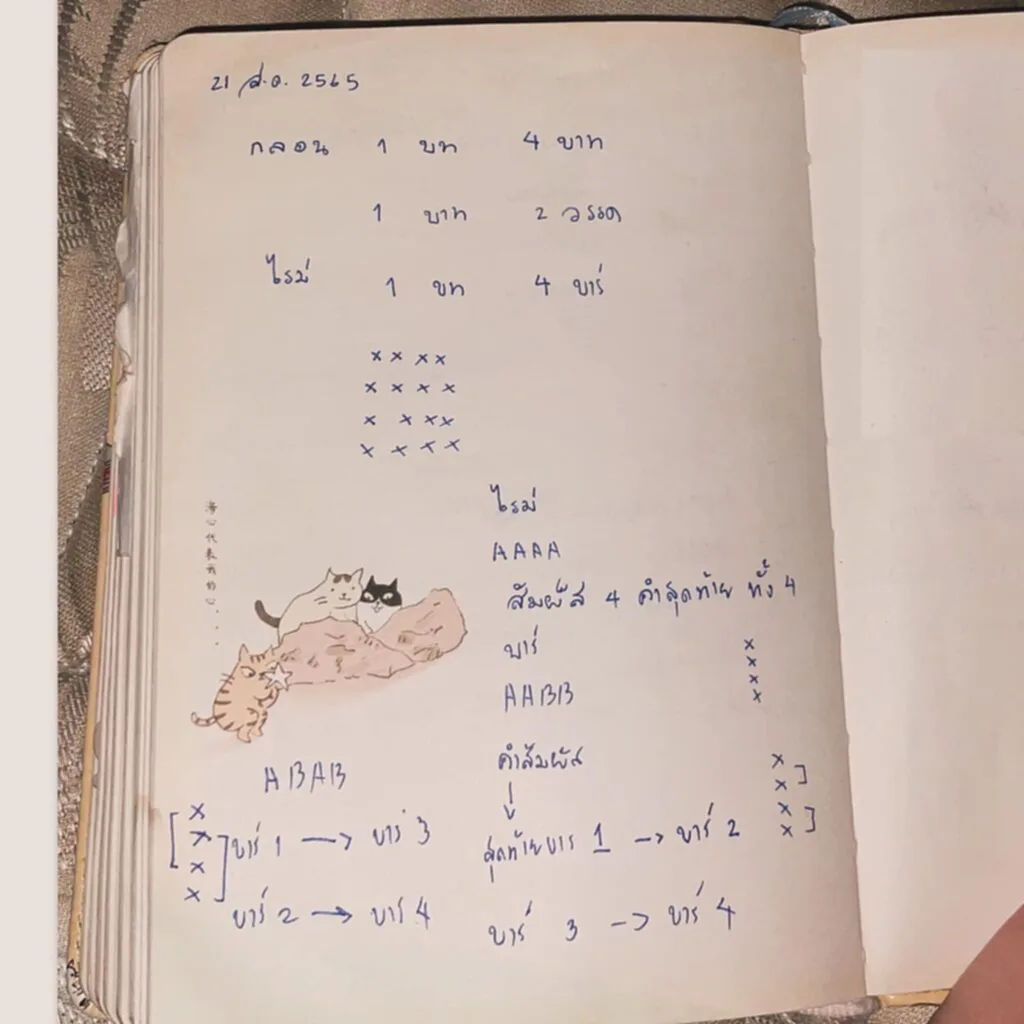 21 ส.ค. 2565
กลอน 1 บท 4 บาท
1 บาท 2 วรรค
ไรม์ 1 บท 4 บาร์
x x x x
x x x x
x x x x
x x x x
ไรม์
AAAA
สัมผัส 4 คำสุดท้าย ทั้ง 4
บาร์
x
x
x
x
AABB
คำสัมผัส
↓
สุดท้ายบาร 1 → บาร์ 2
บาร์ 3 → บาร์ 4
x
x
x
x
ABAB
x
x
x
x
บาร์ 1 → บาร์ 3
บาร์ 2 → บาร์ 4
代表我的心...